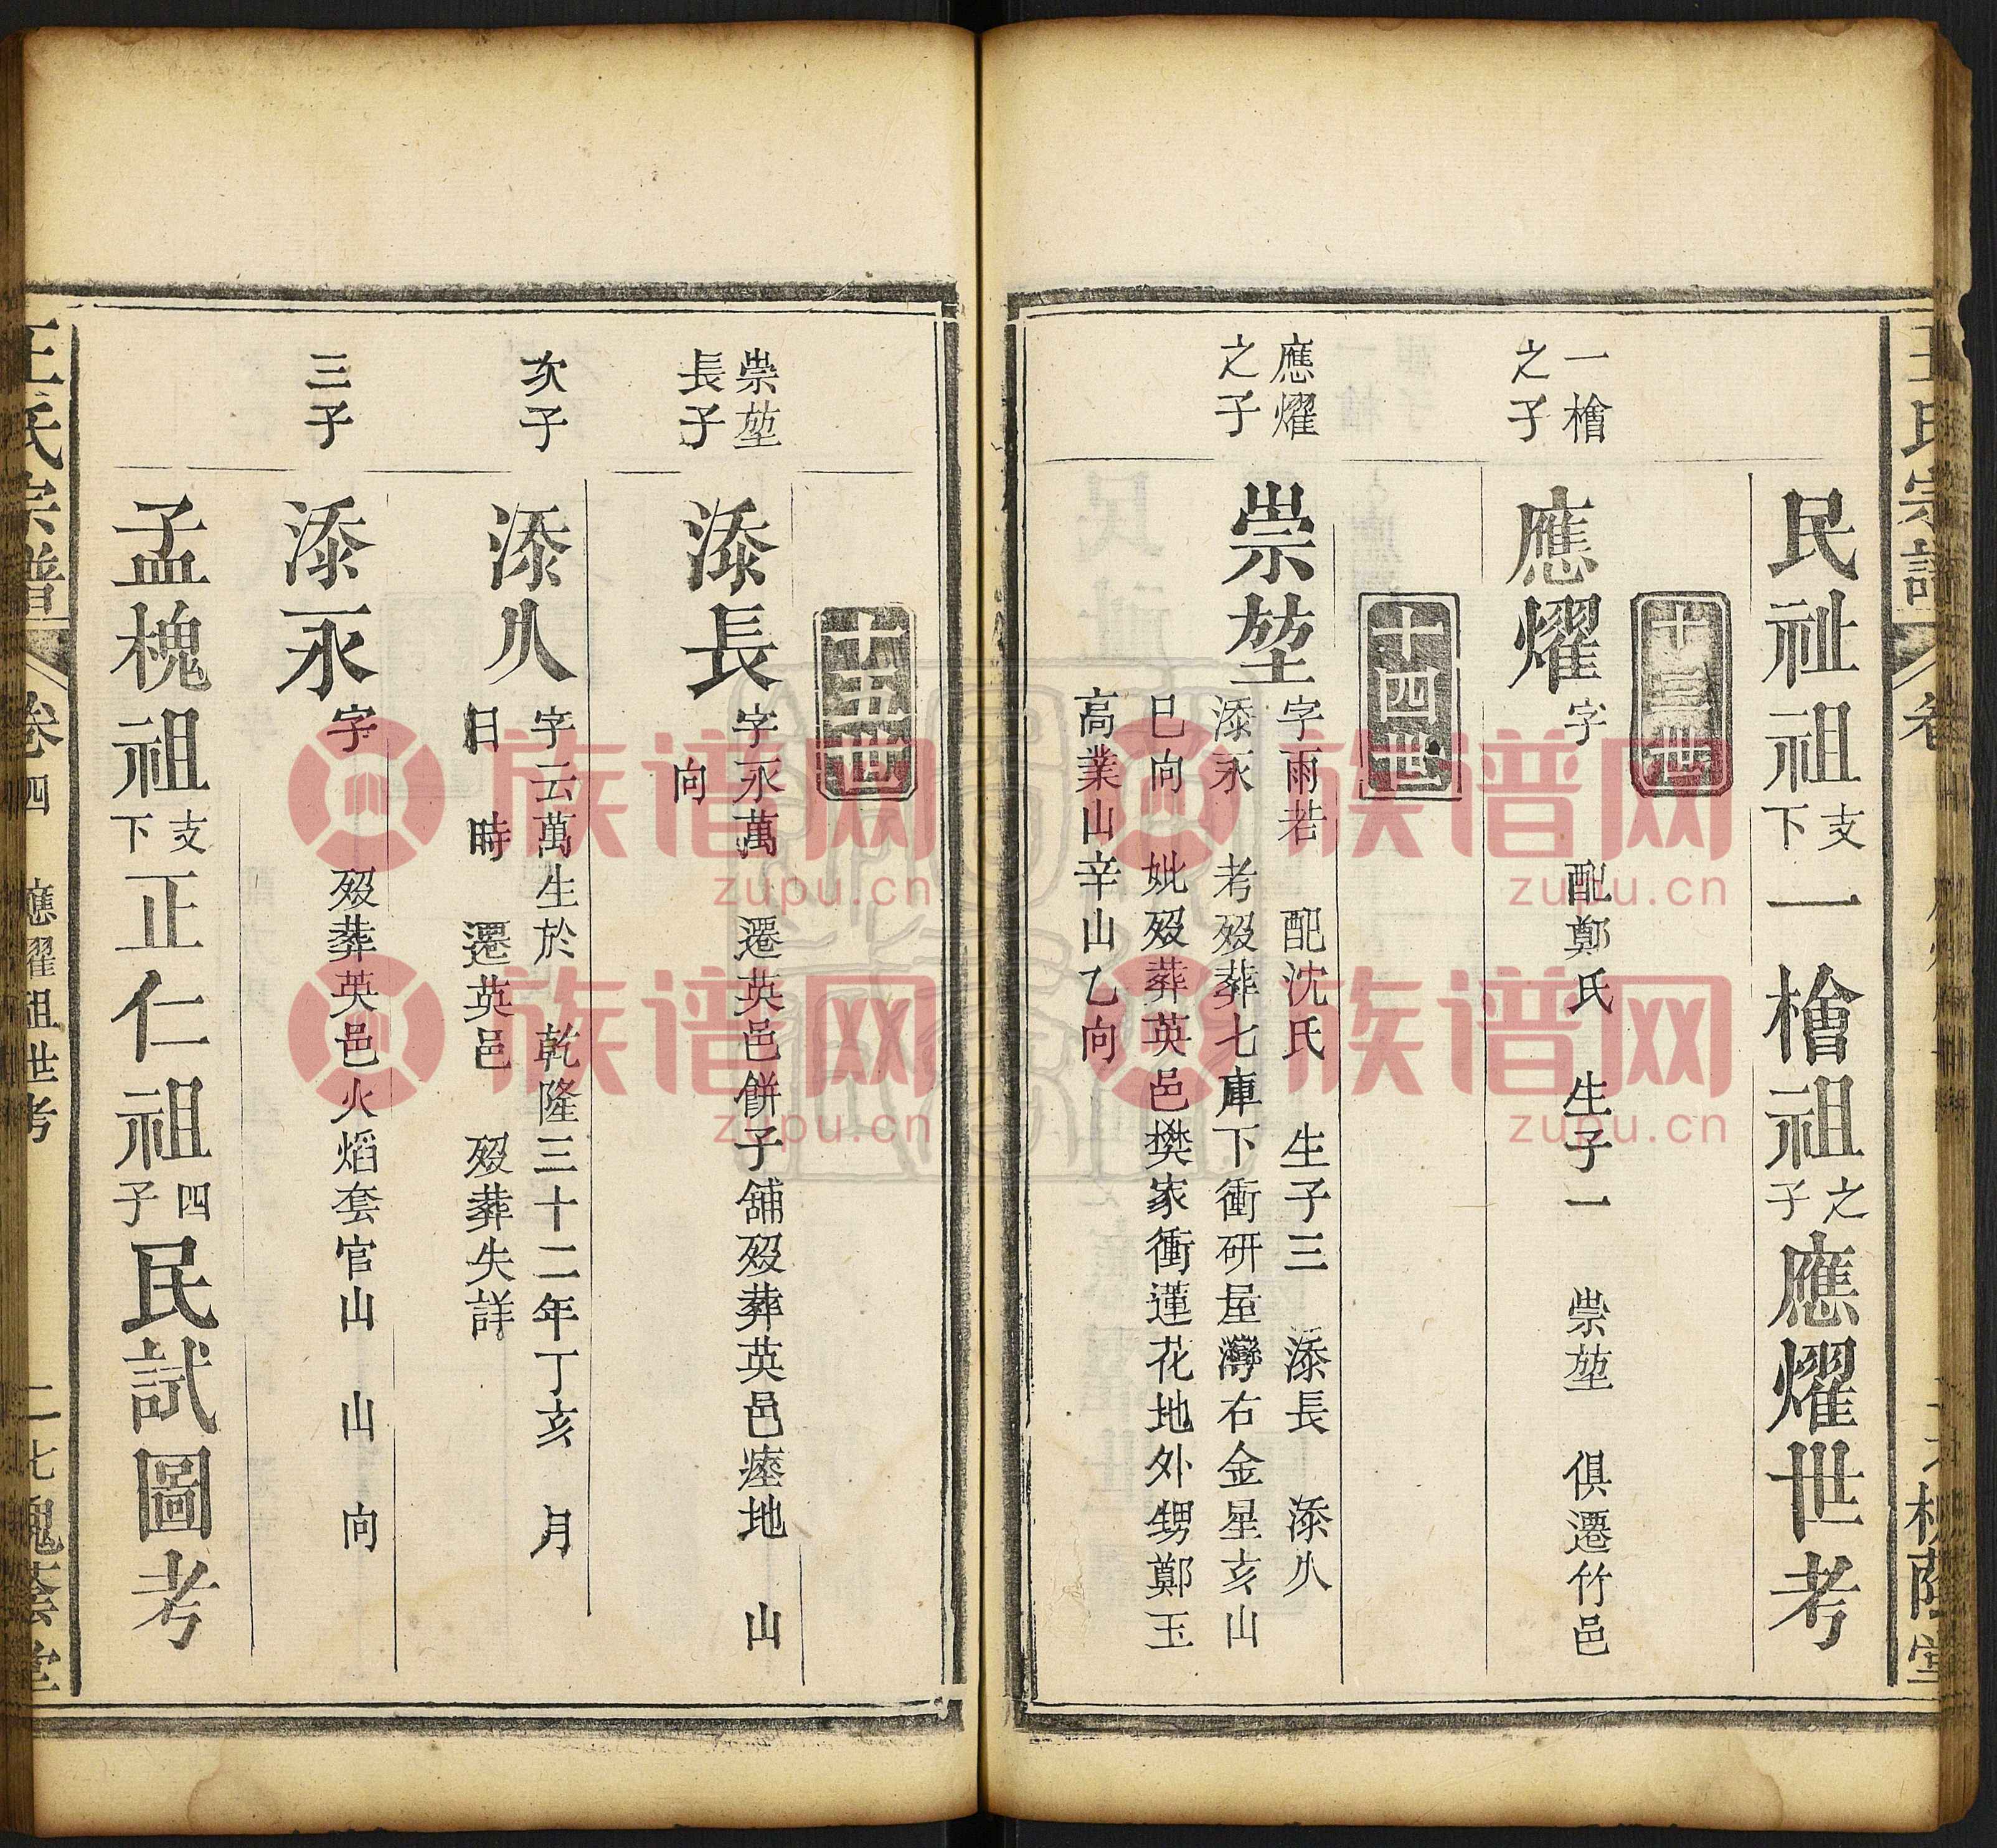 王氏宗譜
民祉祖支下一檜祖之子應燿世考
十三世
一檜之子
應燿
字 配鄭氏 生子一 崇堃 俱遷竹邑
十四世
應燿之子
崇堃
字雨若 配沈氏 生子三 添長 添久
添永 考歿葬七庫下衝研屋灣右金星亥山
巳向 妣歿葬英邑樊家衝蓮花地外甥鄭玉
高業山辛山乙向
十五世
崇堃長子
添長
字永萬 遷英邑餅子舖歿葬英邑瘞地 山
向
次子
添久
字云萬生於 乾隆三十二年丁亥 月
日 時 遷英邑 歿葬失詳
三子
添永
字 歿葬英邑火熖套官山 山 向
孟槐祖支下正仁祖四子民試圖考
王氏宗譜 卷四 應燿祖世考 二七槐蔭堂
族谱网 zupu.cn
族谱网 zupu.cn
族谱网 zupu.cn
族谱网 zupu.cn